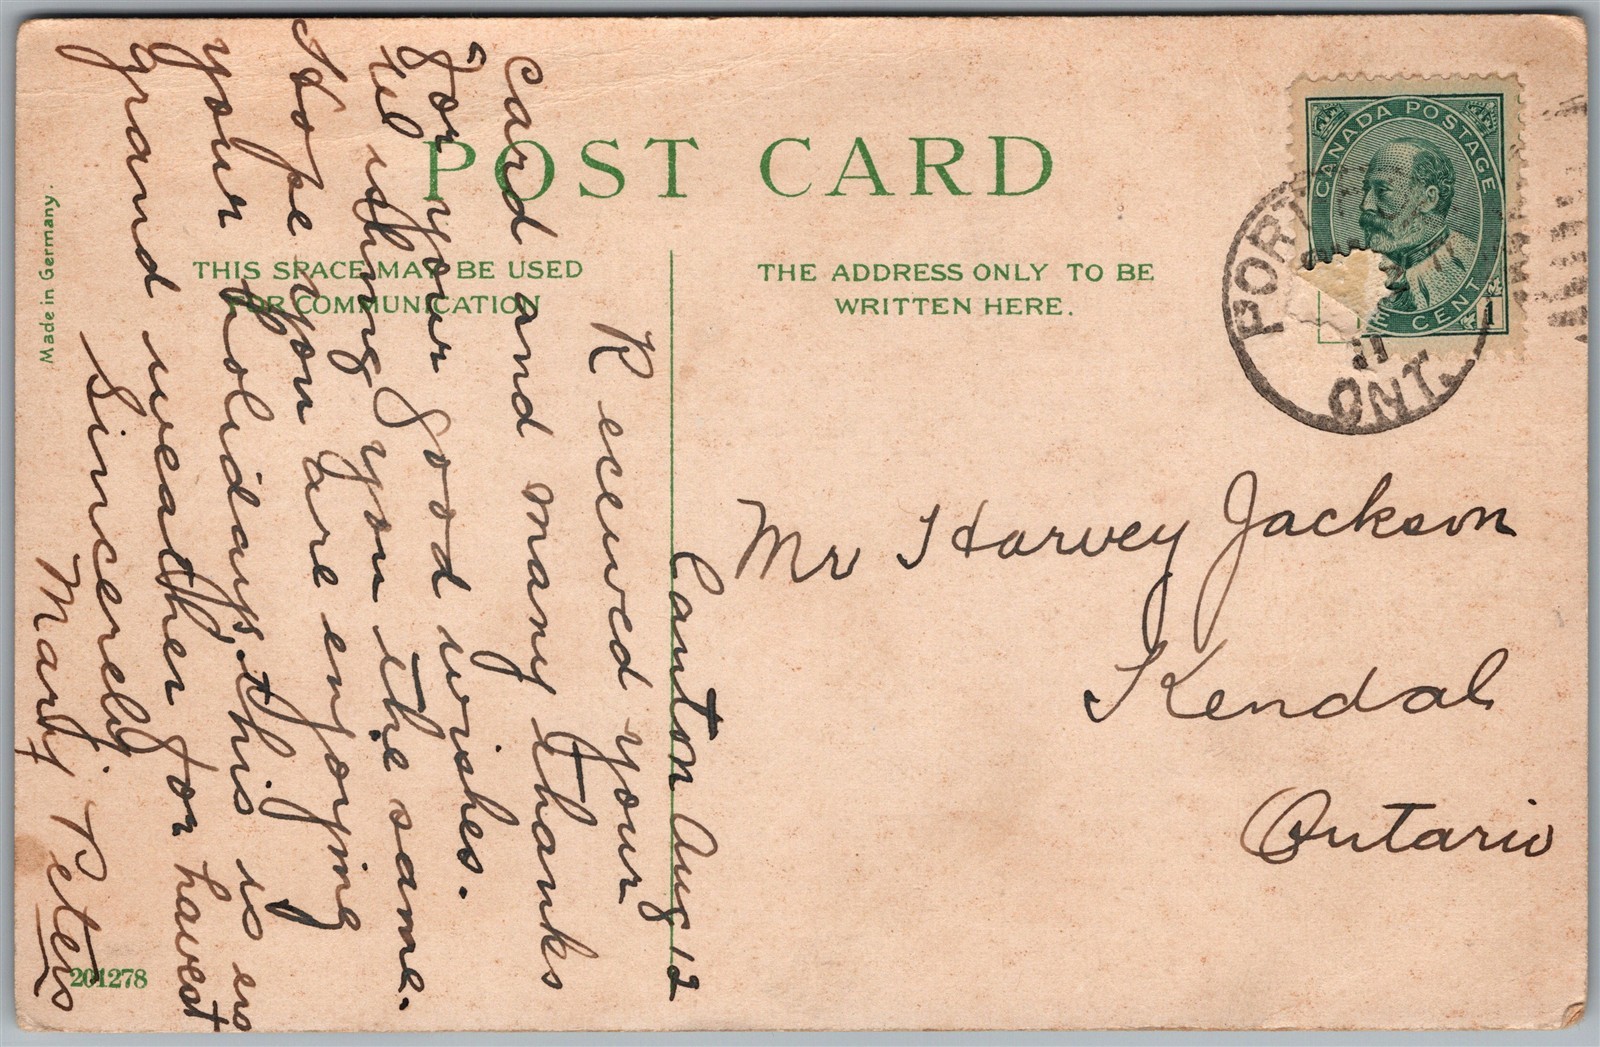 POST CARD
THIS SPACE MAY BE USED
FOR COMMUNICATION
THE ADDRESS ONLY TO BE
WRITTEN HERE.
Made in Germany.
201278
CANADA POSTAGE
CENT
1
PORT
11
ONT.
Mr Harvey Jackson
Kendal
Ontario
Canton Aug 12
Received your
card and many thanks
for your good wishes.
wishing you the same.
I Hope you are enjoying
your holidays. this is
grand weather for havest
Sincerely
Mary Peters